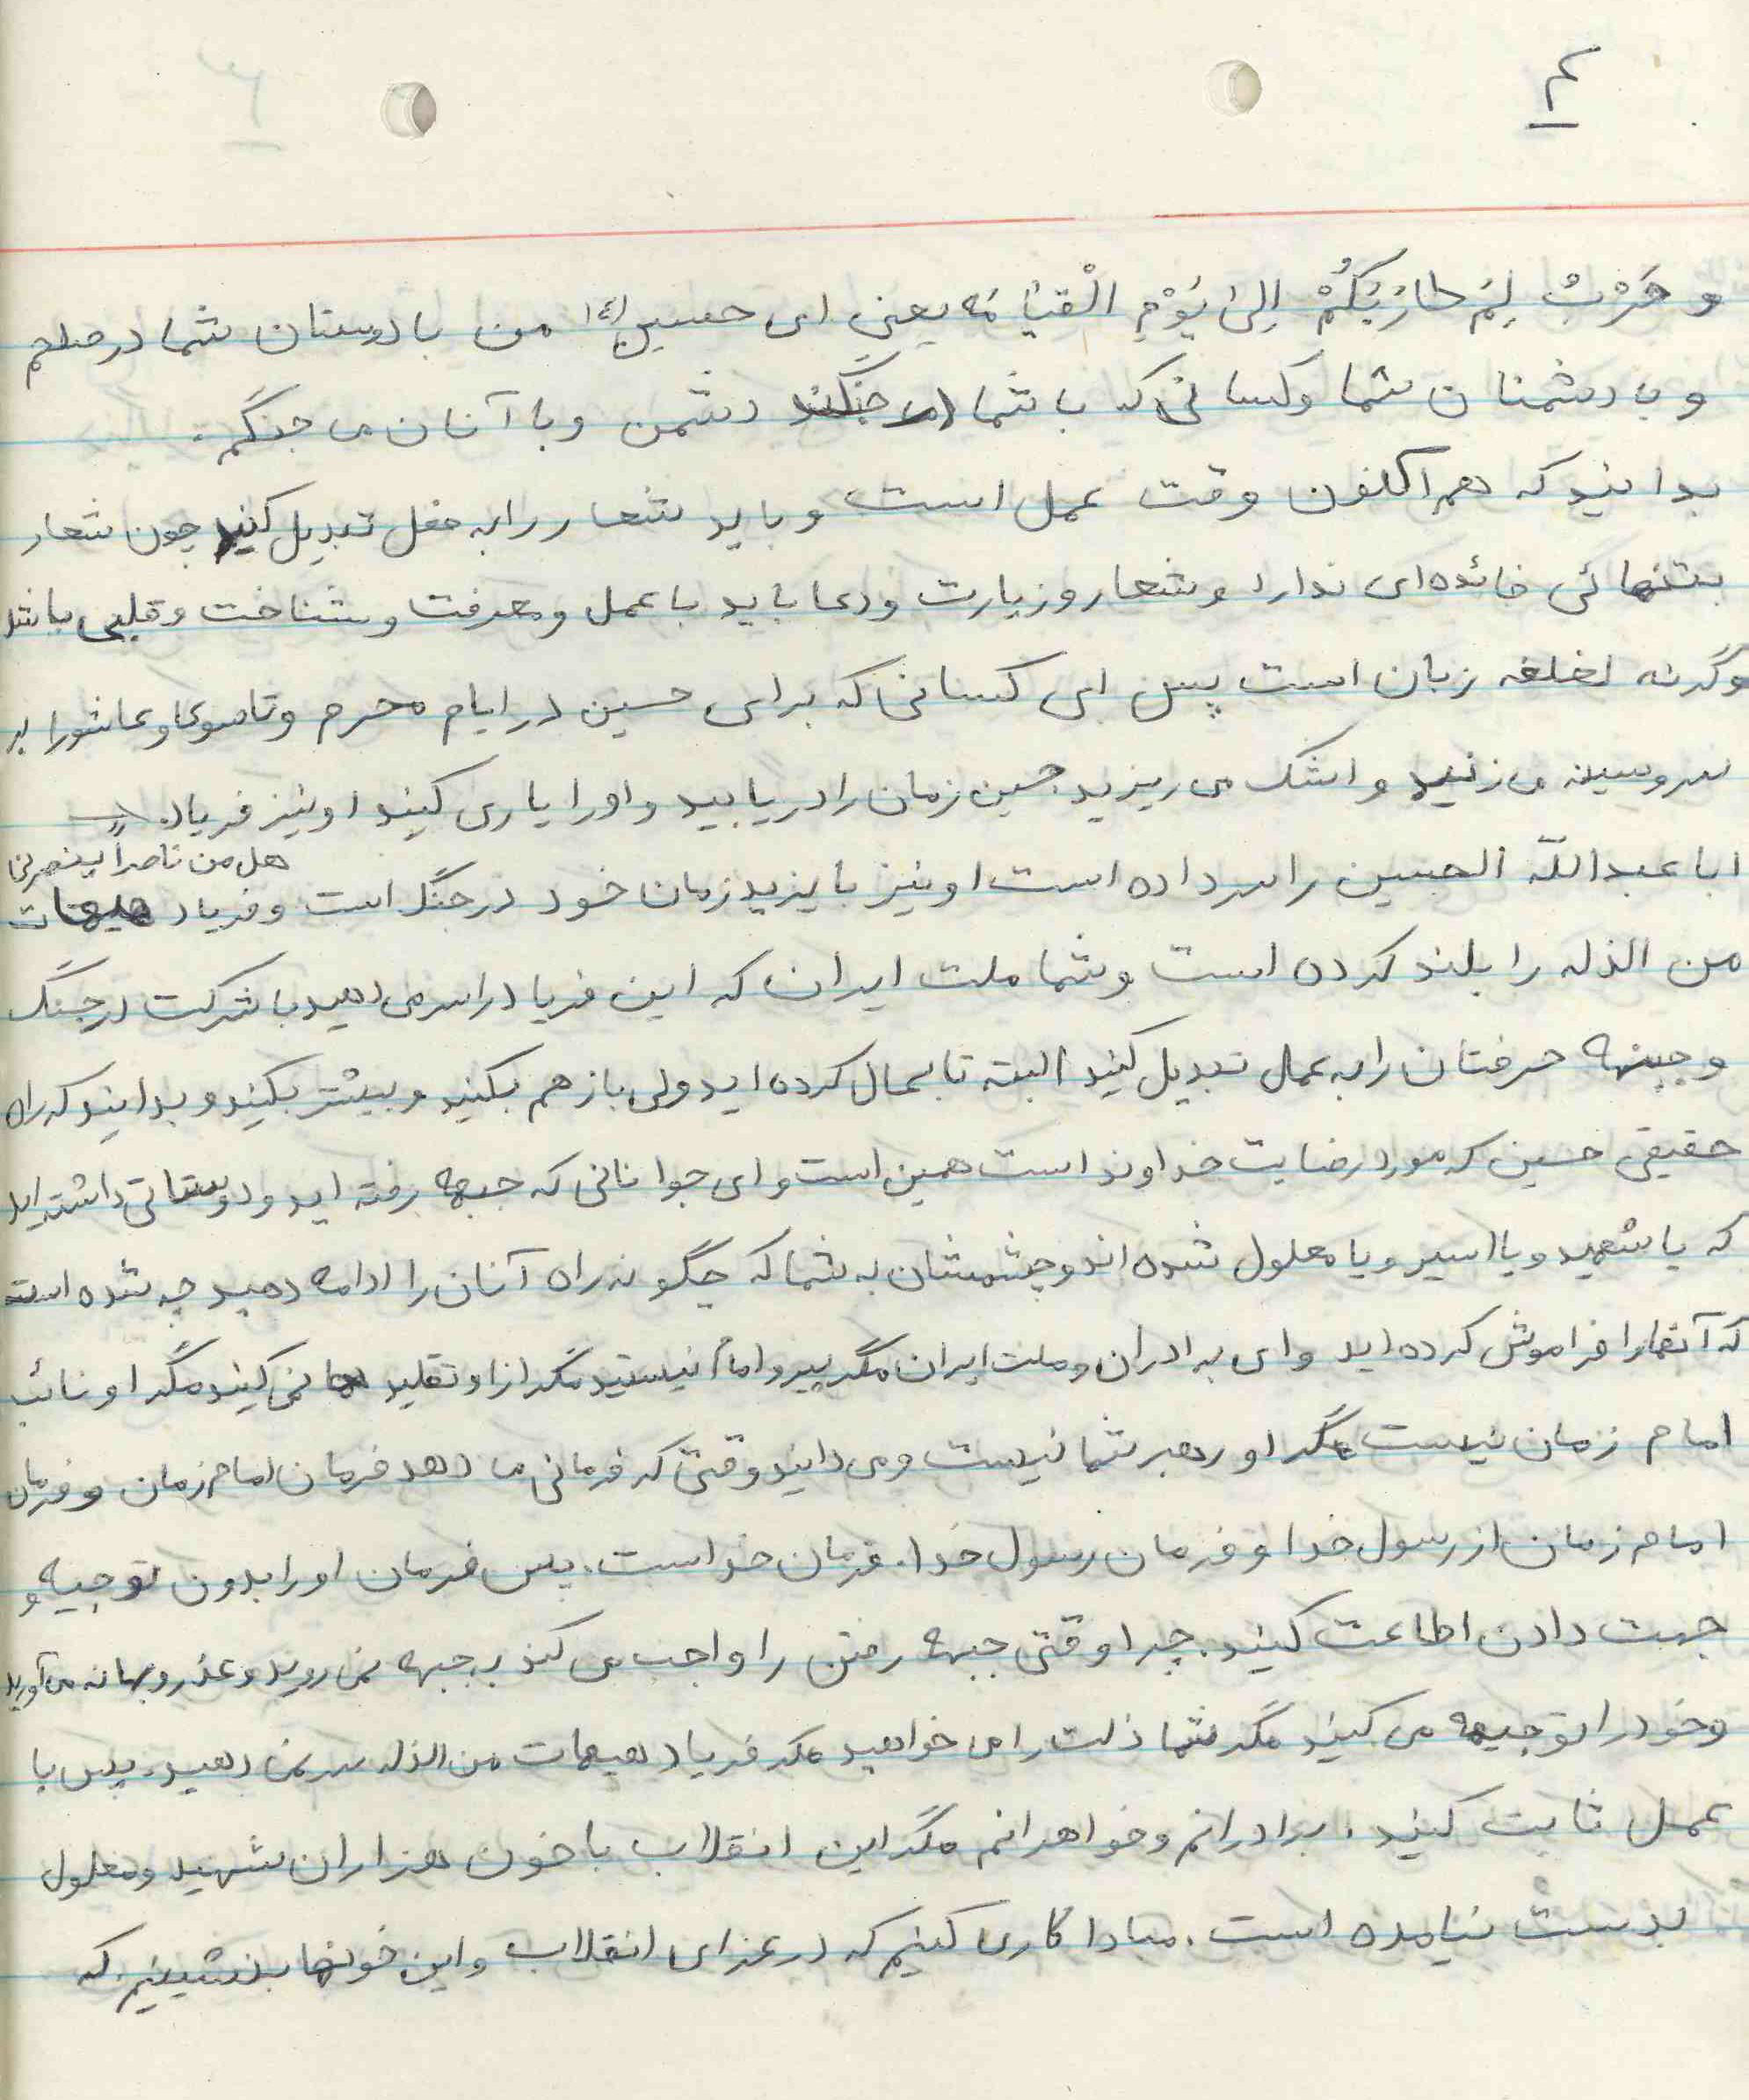 ۴
و حَرْبٌ لِمَنْ حارَبَكُمْ اِلیٰ یَوْمِ الْقِیٰامَه یعنی ای حسین (ع) من با دوستان شما در صلحم
و با دشمنان شما و کسانی که با شما می جنگند دشمن و با آنان می جنگم.
بدانید که هم اکنون وقت عمل است و باید شعار را به فعل تبدیل کنید چون شعار
بتنهائی فائده ای ندارد و شعار و زیارت و دعا باید با عمل و معرفت و شناخت و قلبی باشد
وگرنه لغلغه زبان است پس ای کسانی که برای حسین در ایام محرم و تاسوعا و عاشورا بر
سر و سینه می زنید و اشک می ریزید حسین زمان را دریابید و او را یاری کنید او نیز فریاد
هل من ناصراً ینصرنی
ابا عبدالله الحسین را سر داده است او نیز با یزید زمان خود در جنگ است و فریاد هیهات
من الذله را بلند کرده است و شما ملت ایران که این فریاد را سر می دهید با شرکت در جنگ
و جبهه حرفتان را به عمل تبدیل کنید البته تا بحال کرده اید ولی باز هم بکنید و بیشتر بکنید و بدانید که راه
حقیقی حسین که مورد رضایت خداوند است همین است و ای جوانانی که جبهه رفته اید و دوستانی داشته اید
که یا شهید و یا اسیر و یا معلول شده اند و چشمشان به شما که چگونه راه آنان را ادامه دهید چه شده است
که آنها را فراموش کرده اید و ای برادران و ملت ایران مگر پیرو امام نیستید مگر از او تقلید نمی کنید مگر او نائب
امام زمان نیست مگر او رهبر شما نیست و می دانید وقتی که فرمانی می دهد فرمان امام زمان و فرمان
امام زمان از رسول خدا و فرمان رسول خدا. فرمان خداست. پس فرمان او را بدون توجیه و
جهت دادن اطاعت کنید. چرا وقتی جبهه رفتن را واجب می کند به جبهه نمی روید و عذر و بهانه می آورید
و خود را توجیهه می کنید مگر شما ذلت را می خواهید مگر فریاد هیهات من الذله سر نمی دهید. پس با
عمل ثابت کنید. برادرانم و خواهرانم مگر این انقلاب با خون هزاران شهید و معلول
بدست نیامده است. مبادا کاری کنیم که در عزای انقلاب و این خونها بنشینیم که